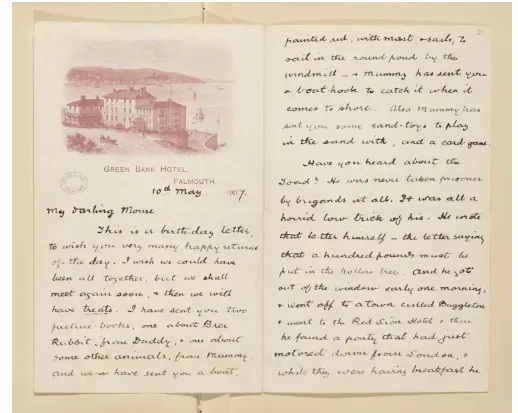 GREEN BANK HOTEL.
FALMOUTH
10th May 1907.
My Darling Mouse
This is a birth-day letter,
to wish you very many happy returns
of the day. I wish we could have
been all together, but we shall
meet again soon, & then we will
have treats. I have sent you two
picture-books, one about Brer
Rabbit, from Daddy, & one about
some other animals, from Mummy.
and we have sent you a boat,
2
painted red, with mast & sails, to
sail in the round pond by the
windmill – & Mummy has sent you
a boat-hook to catch it when it
comes to shore. Also Mummy has
sent you some sand-toys to play
in the sand with, and a card-game.
Have you heard about the
Toad? He was never taken prisoner
by brigands at all. It was all a
horrid low trick of his. He wrote
that letter himself – the letter saying
that a hundred pounds must be
put in the hollow tree. And he got
out of the window early one morning,
& went off to a town called Buggleton
& went to the Red Lion Hotel & there
he found a party that had just
motored down from London, &
while they were having breakfast he